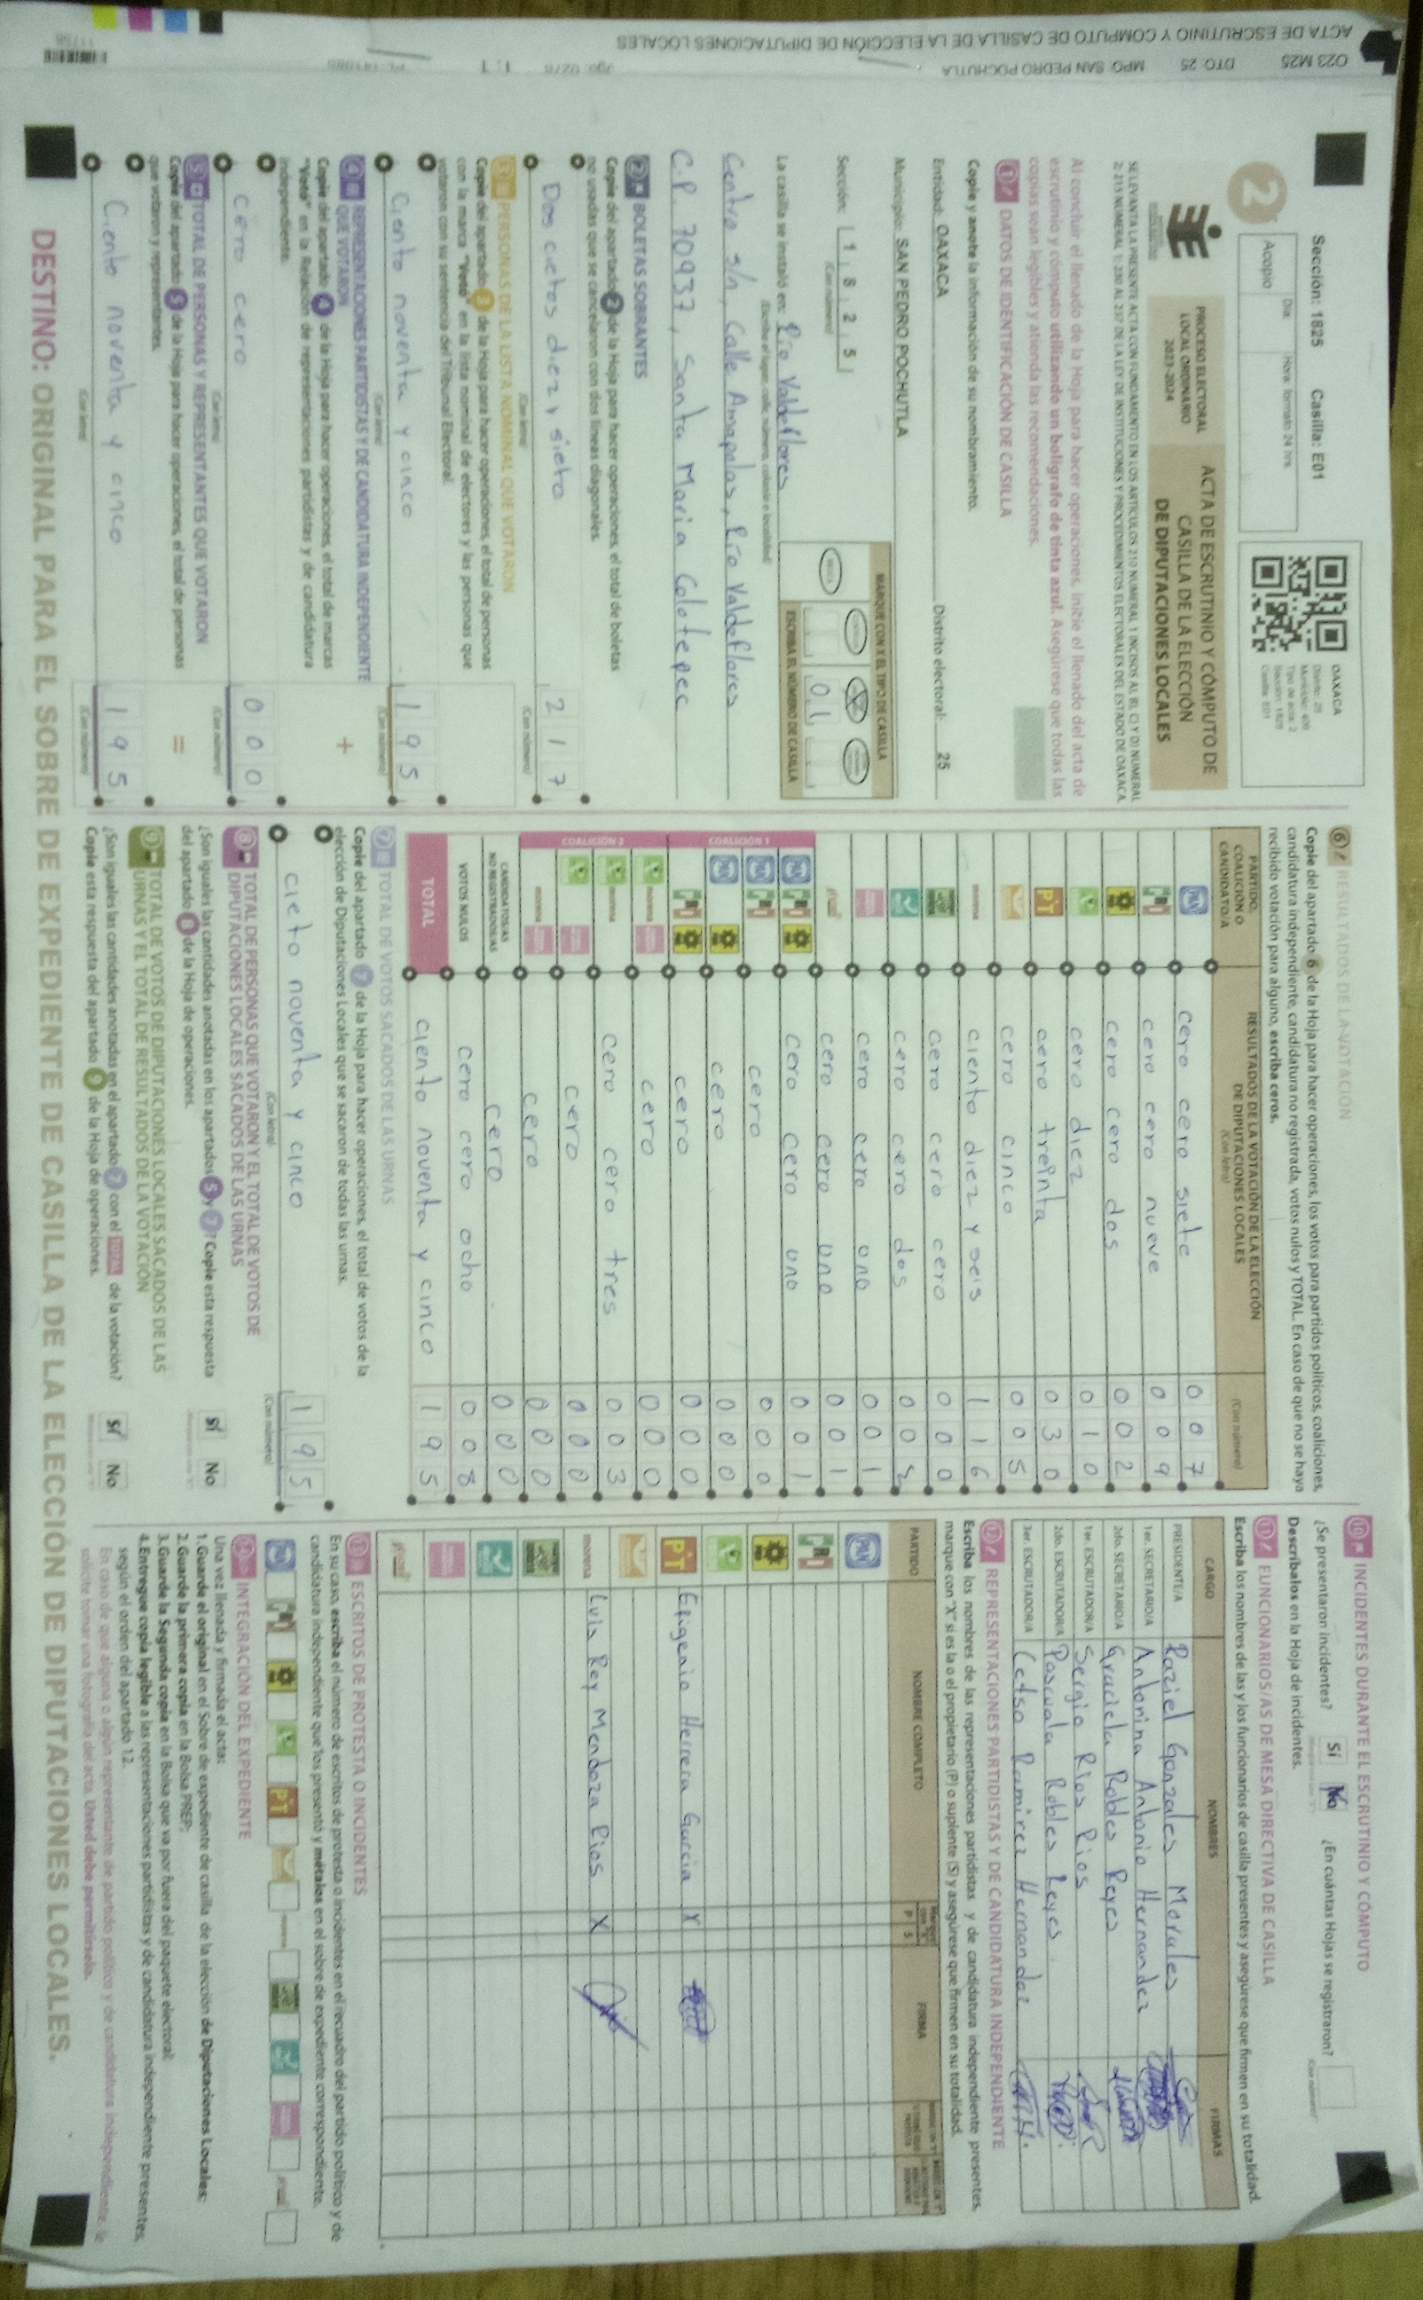 O23 M25 DTO: 25 MPO: SAN PEDRO POCHUTLA
ACTA DE ESCRUTINIO Y CÓMPUTO DE CASILLA DE LA ELECCIÓN DE DIPUTACIONES LOCALES
Sección: 1825 Casilla: E01
2
Acopio
Día:
Hora: formato 24 hrs.
OAXACA
PROCESO ELECTORAL
LOCAL ORDINARIO
2023-2024
ACTA DE ESCRUTINIO Y CÓMPUTO DE
CASILLA DE LA ELECCIÓN
DE DIPUTACIONES LOCALES
Al concluir el llenado de la Hoja para hacer operaciones, inicie el llenado del acta de
escrutinio y cómputo utilizando un bolígrafo de tinta azul. Asegúrese que todas las
copias sean legibles y atienda las recomendaciones.
1 DATOS DE IDENTIFICACIÓN DE CASILLA
Copie y anote la información de su nombramiento.
Entidad: OAXACA Distrito electoral: 25
Municipio: SAN PEDRO POCHUTLA
Sección: 1 8 2 5
(Con número)
MARQUE CON X EL TIPO DE CASILLA
0 1
ESCRIBA EL NÚMERO DE CASILLA
La casilla se instaló en: Río Valdeflores
Centro s/n, Calle Amapolas, Río Valdeflores
C.P. 70937, Santa Maria Colotepec
2 BOLETAS SOBRANTES
Copie del apartado 2 de la Hoja para hacer operaciones, el total de boletas
no usadas que se cancelaron con dos líneas diagonales.
Dos cietos diez, sieto 2 1 7
(Con letra) (Con número)
3 PERSONAS DE LA LISTA NOMINAL QUE VOTARON
Copie del apartado 3 de la Hoja para hacer operaciones, el total de personas
con la marca "Votó" en la lista nominal de electores y las personas que
votaron con su sentencia del Tribunal Electoral.
Ciento noventa y cinco 1 9 5
(Con letra) (Con número)
4 REPRESENTACIONES PARTIDISTAS Y DE CANDIDATURA INDEPENDIENTE
QUE VOTARON
Copie del apartado 4 de la Hoja para hacer operaciones, el total de marcas
"Votó" en la Relación de representaciones partidistas y de candidatura
independiente.
+
cero cero 0 0 0
(Con letra) (Con número)
5 TOTAL DE PERSONAS Y REPRESENTANTES QUE VOTARON
Copie del apartado 5 de la Hoja para hacer operaciones, el total de personas
que votaron y representantes.
=
Ciento noventa y cinco 1 9 5
(Con letra) (Con número)
6 RESULTADOS DE LA VOTACIÓN
Copie del apartado 6 de la Hoja para hacer operaciones, los votos para partidos políticos, coaliciones,
candidatura independiente, candidatura no registrada, votos nulos y TOTAL. En caso de que no se haya
recibido votación para alguno, escriba ceros.
PARTIDO,
COALICIÓN O
CANDIDATO/A
RESULTADOS DE LA VOTACIÓN DE LA ELECCIÓN
DE DIPUTACIONES LOCALES
(Con letra) (Con número)
PAN cero cero siete 0 0 7
PRI cero cero nueve 0 0 9
cero cero dos 0 0 2
cero diez 0 1 0
PT cero treinta 0 3 0
cero cinco 0 0 5
morena ciento diez y seis 1 1 6
cero cero cero 0 0 0
cero cero dos 0 0 2
cero cero uno 0 0 1
cero cero uno 0 0 1
COALICIÓN 1
cero cero uno 0 0 1
cero 0 0 0
cero 0 0 0
cero 0 0 0
COALICIÓN 2
cero 0 0 0
cero cero tres 0 0 3
cero 0 0 0
cero 0 0 0
CANDIDATOS/AS
NO REGISTRADOS/AS cero 0 0 0
VOTOS NULOS cero cero ocho 0 0 8
TOTAL ciento noventa y cinco 1 9 5
7 TOTAL DE VOTOS SACADOS DE LAS URNAS
Copie del apartado 7 de la Hoja para hacer operaciones, el total de votos de la
elección de Diputaciones Locales que se sacaron de todas las urnas.
cieto noventa y cinco 1 9 5
(Con letra) (Con número)
8 TOTAL DE PERSONAS QUE VOTARON Y EL TOTAL DE VOTOS DE
DIPUTACIONES LOCALES SACADOS DE LAS URNAS
¿Son iguales las cantidades anotadas en los apartados 5 y 7? Copie esta respuesta
del apartado 8 de la Hoja de operaciones.
Sí No
9 TOTAL DE VOTOS DE DIPUTACIONES LOCALES SACADOS DE LAS
URNAS Y EL TOTAL DE RESULTADOS DE LA VOTACIÓN
¿Son iguales las cantidades anotadas en el apartado 7 con el TOTAL de la votación?
Copie esta respuesta del apartado 9 de la Hoja de operaciones.
Sí No
10 INCIDENTES DURANTE EL ESCRUTINIO Y CÓMPUTO
¿Se presentaron incidentes? Sí No ¿En cuántas Hojas se registraron?
Descríbalos en la Hoja de incidentes.
11 FUNCIONARIOS/AS DE MESA DIRECTIVA DE CASILLA
Escriba los nombres de las y los funcionarios de casilla presentes y asegúrese que firmen en su totalidad.
CARGO NOMBRES FIRMAS
PRESIDENTE/A Raziel Gonzales Morales
1er. SECRETARIO/A Antonina Antonio Hernandez
2do. SECRETARIO/A Graciela Robles Reyes
1er. ESCRUTADOR/A Sergio Rios Rios
2do. ESCRUTADOR/A Pascuala Robles Reyes
3er. ESCRUTADOR/A Celso Ramirez Hernandez
12 REPRESENTACIONES PARTIDISTAS Y DE CANDIDATURA INDEPENDIENTE
Escriba los nombres de las representaciones partidistas y de candidatura independiente presentes,
marque con "X" si es la o el propietario (P) o suplente (S) y asegúrese que firmen en su totalidad.
PARTIDO NOMBRE COMPLETO P S FIRMA
PAN
PRI
PT Efigenio Herrera Garcia X
morena Luis Rey Mendoza Rios X
13 ESCRITOS DE PROTESTA O INCIDENTES
En su caso, escriba el número de escritos de protesta o incidentes en el recuadro del partido político y de
candidatura independiente que los presentó y métalos en el sobre de expediente correspondiente.
14 INTEGRACIÓN DEL EXPEDIENTE
Una vez llenada y firmada el acta:
1. Guarde el original en el Sobre de expediente de casilla de la elección de Diputaciones Locales;
2. Guarde la primera copia en la Bolsa PREP;
3. Guarde la Segunda copia en la Bolsa que va por fuera del paquete electoral;
4. Entregue copia legible a las representaciones partidistas y de candidatura independiente presentes,
según el orden del apartado 12.
En caso de que alguna o algún representante de partido político y de candidatura independiente, le
solicite tomar una fotografía del acta, Usted debe permitírselo.
DESTINO: ORIGINAL PARA EL SOBRE DE EXPEDIENTE DE CASILLA DE LA ELECCIÓN DE DIPUTACIONES LOCALES.